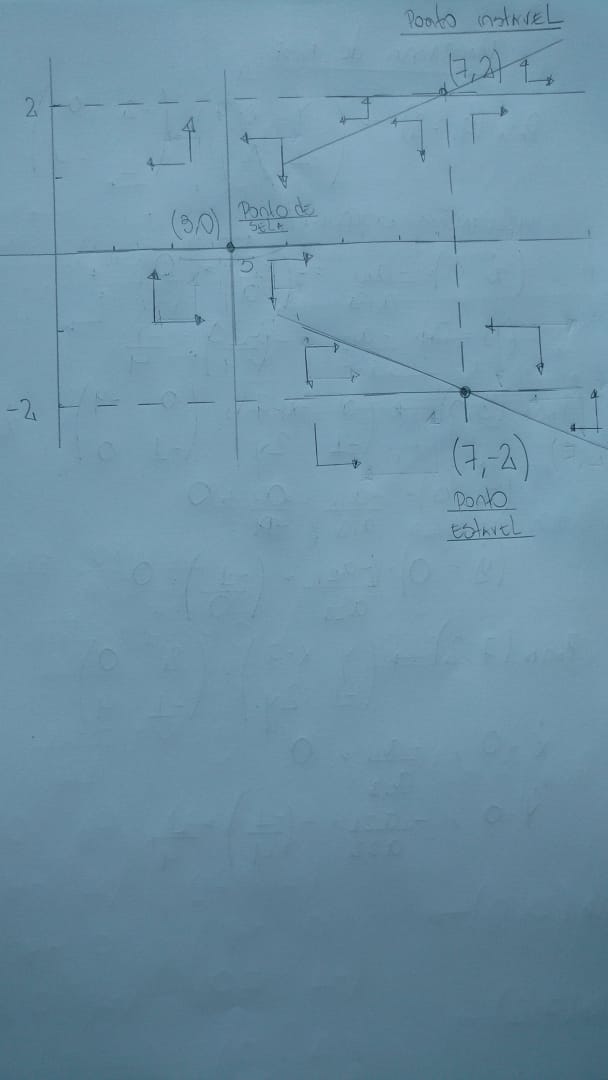 Ponto instavel
(7,2)
2
(3,0)
Ponto de
SELA
3
-2
(7,-2)
Ponto
Estavel